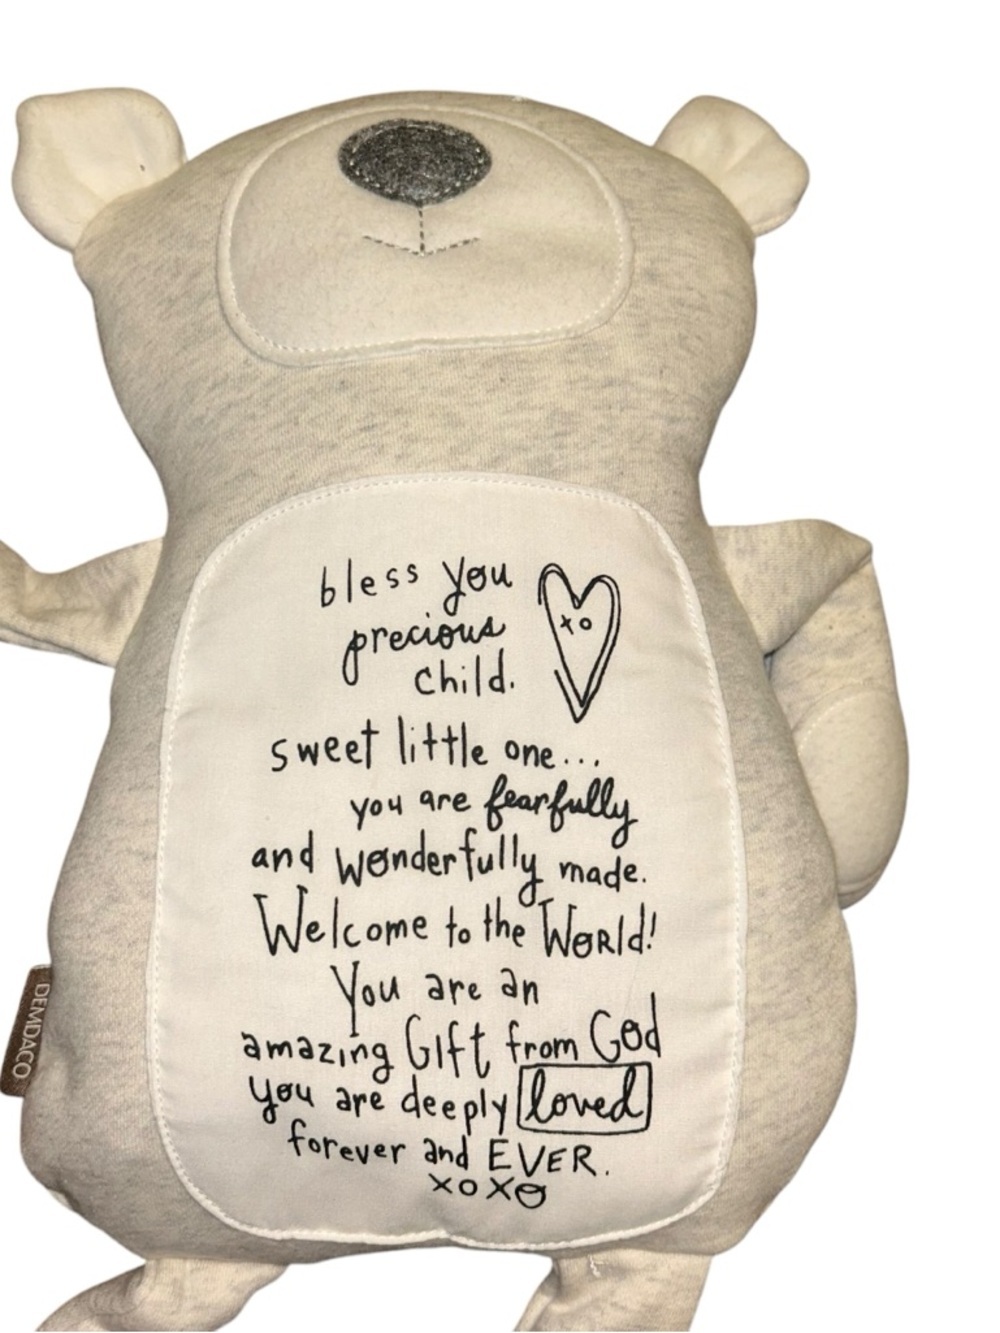 bless you
xo
precious
child.
sweet little one...
you are fearfully
and wonderfully made.
Welcome to the WORld!
You are an
amazing GIft from God
you are deeply loved
forever and EVER.
xoxo
DEMDACO